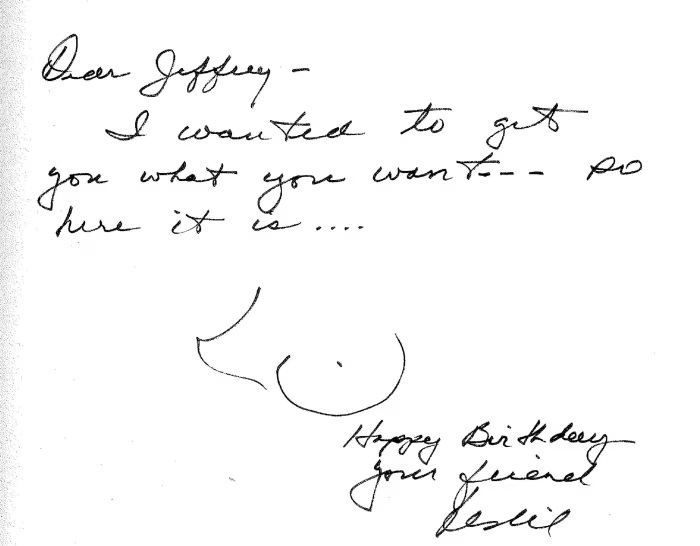 Dear Jeffrey -
I wanted to get
you what you want--- so
here it is ....
Happy Birthday
your friend
Leslie